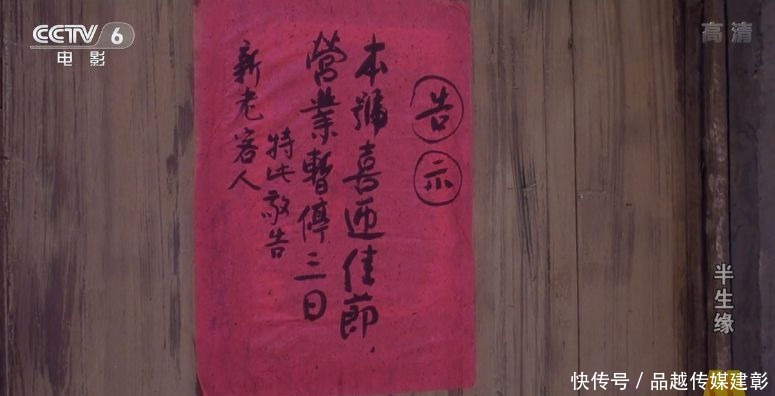 CCTV 6
电影
高清
告示
本號喜迎佳節,
營業暫停三日
特此敬告
新老客人
半生缘
快传号 / 品越传媒建彰